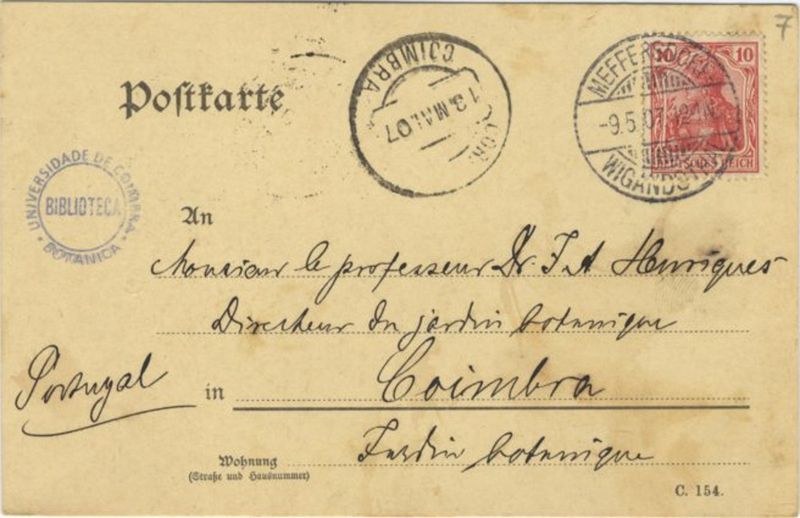 7
Postkarte
COR. COIMBRA
13. MAI. 07
MEFFERSDORF
-9.5.07. 12-1N.
WIGANDSTHAL
10 10
REICH
UNIVERSIDADE DE COIMBRA
BIBLIOTECA
BOTANICA
An
Monsieur le professeur Dr. J. A Henriques
Directeur du jardin botanique
Portugal
in Coimbra
Jardin botanique
Wohnung
(Straße und Hausnummer)
C. 154.